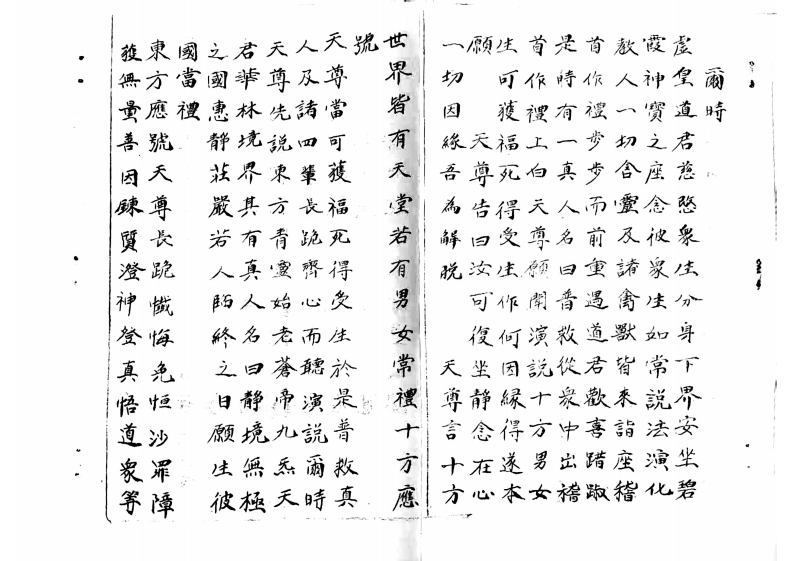 爾時
虛皇道君慈愍衆生分身下界安坐碧
霞神寶之座念彼衆生如常說法演化
教人一切含靈及諸禽獸皆來詣座稽
首作禮步步而前重遇道君歡喜踏踧
是時有一真人名曰普救從衆中出稽
首作禮上白天尊願開演說十方男女
生可獲福死得受生作何因緣得遂本
願 天尊告曰汝可復坐靜念在心
一切因緣吾為解脫 天尊言十方
世界皆有天堂若有男女常禮十方應
號
天尊當可獲福死得受生於是普救真
人及諸四輩長跪齊心而聽演說爾時
天尊先說東方青靈始老蒼帝九炁天
君華林境界其有真人名曰靜境無極
之國惠靜莊嚴若人臨終之日願生彼
國當禮
東方應號天尊長跪懺悔免恒沙罪障
獲無量善因鍊質澄神登真悟道衆等